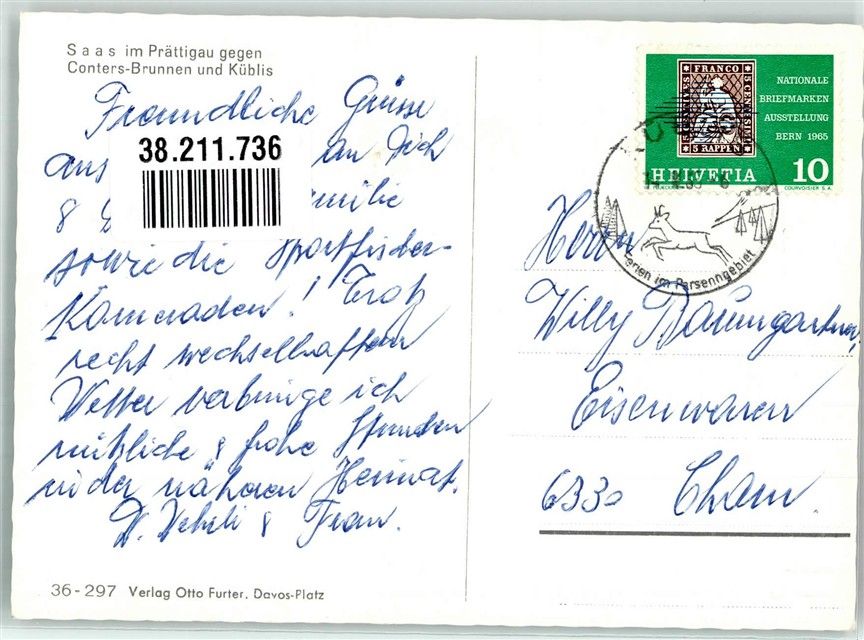 Saas im Prättigau gegen
Conters-Brunnen und Küblis
Freundliche Grüsse
aus an Dich
38.211.736
& milie
sowie die Sportfischer-
Kameraden! Trotz
recht wechselhaftem
Wetter verbringe ich
nützliche & frohe Stunden
in der näheren Heimat.
W. Wehrli & Frau.
36-297 Verlag Otto Furter, Davos-Platz
FRANCO
5 RAPPEN
NATIONALE
BRIEFMARKEN
AUSSTELLUNG
BERN 1965
HELVETIA 10
COURVOISIER S.A.
Ferien im Parsenngebiet
Herrn
Willy Baumgartner,
Eisenwaren
6330 Cham.